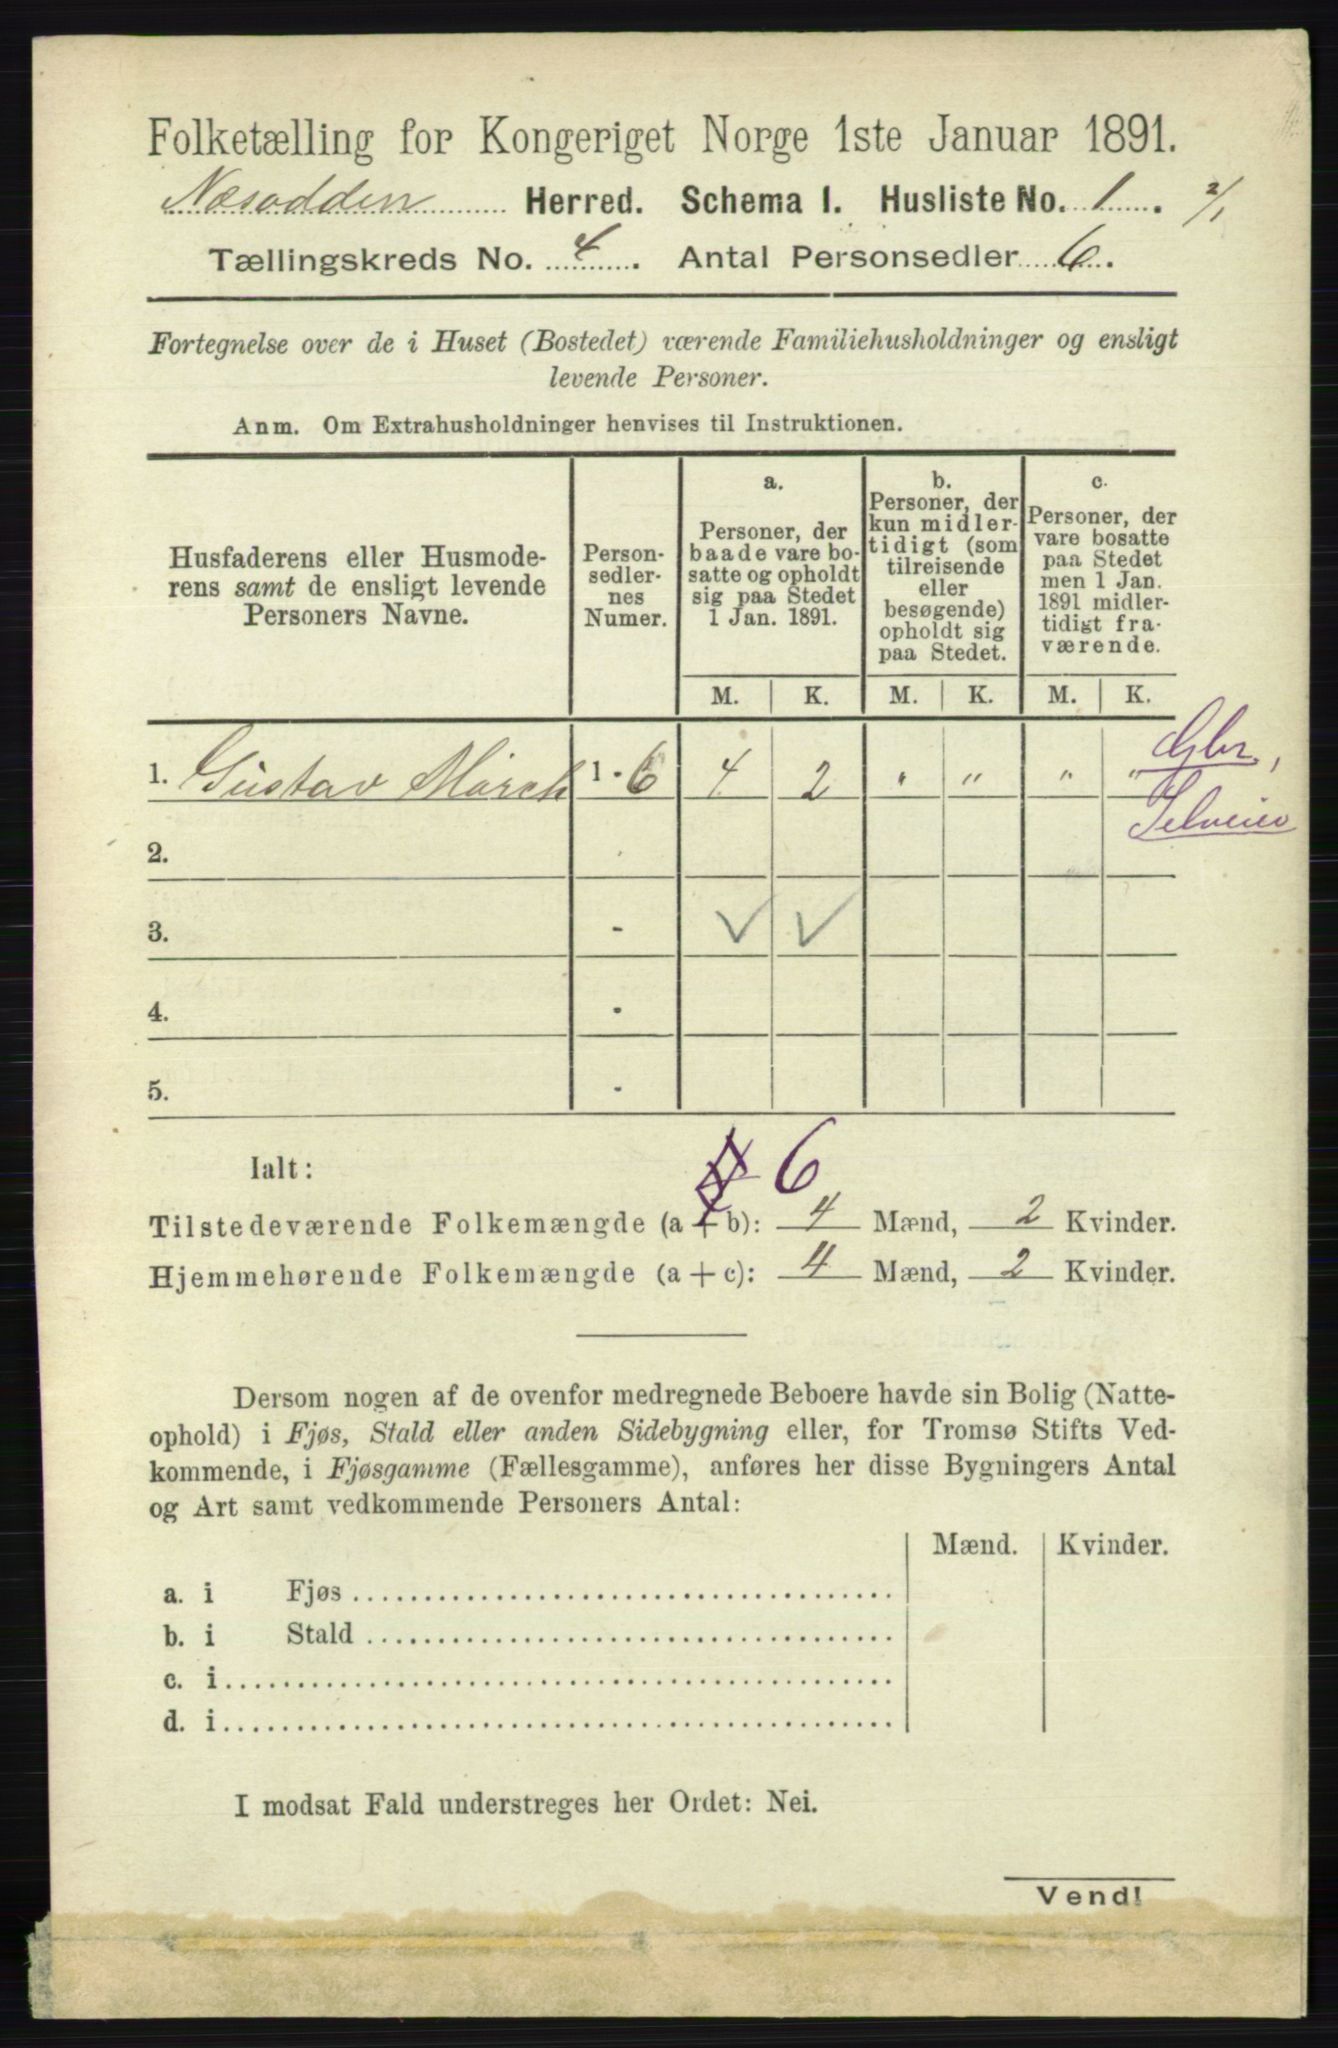 Folketælling for Kongeriget Norge 1ste Januar 1891.
Næsodden Herred. Schema I. Husliste No. 1. 2/1
Tællingskreds No. 4. Antal Personsedler 6.
Fortegnelse over de i Huset (Bostedet) værende Familiehusholdninger og ensligt
levende Personer.
Anm. Om Extrahusholdninger henvises til Instruktionen.
Husfaderens eller Husmode-
rens samt de ensligt levende
Personers Navne.
Person-
sedler-
nes
Numer.
a.
Personer, der
baade vare bo-
satte og opholdt
sig paa Stedet
1 Jan. 1891.
b.
Personer, der
kun midler-
tidigt (som
tilreisende
eller
besøgende)
opholdt sig
paa Stedet.
c.
Personer, der
vare bosatte
paa Stedet
men 1 Jan.
1891 midler-
tidigt fra-
værende.
M. K. M. K. M. K.
1. Gustav Mörch 1 - 6 4 2 " " " " Gbr,
Selveier
2.
3. -
4. -
5. -
6
Ialt:
Tilstedeværende Folkemængde (a + b): 4 Mænd, 2 Kvinder.
Hjemmehørende Folkemængde (a + c): 4 Mænd, 2 Kvinder.
Dersom nogen af de ovenfor medregnede Beboere havde sin Bolig (Natte-
ophold) i Fjøs, Stald eller anden Sidebygning eller, for Tromsø Stifts Ved-
kommende, i Fjøsgamme (Fællesgamme), anføres her disse Bygningers Antal
og Art samt vedkommende Personers Antal:
Mænd. Kvinder.
a. i Fjøs
b. i Stald
c. i
d. i
I modsat Fald understreges her Ordet: Nei.
Vend!